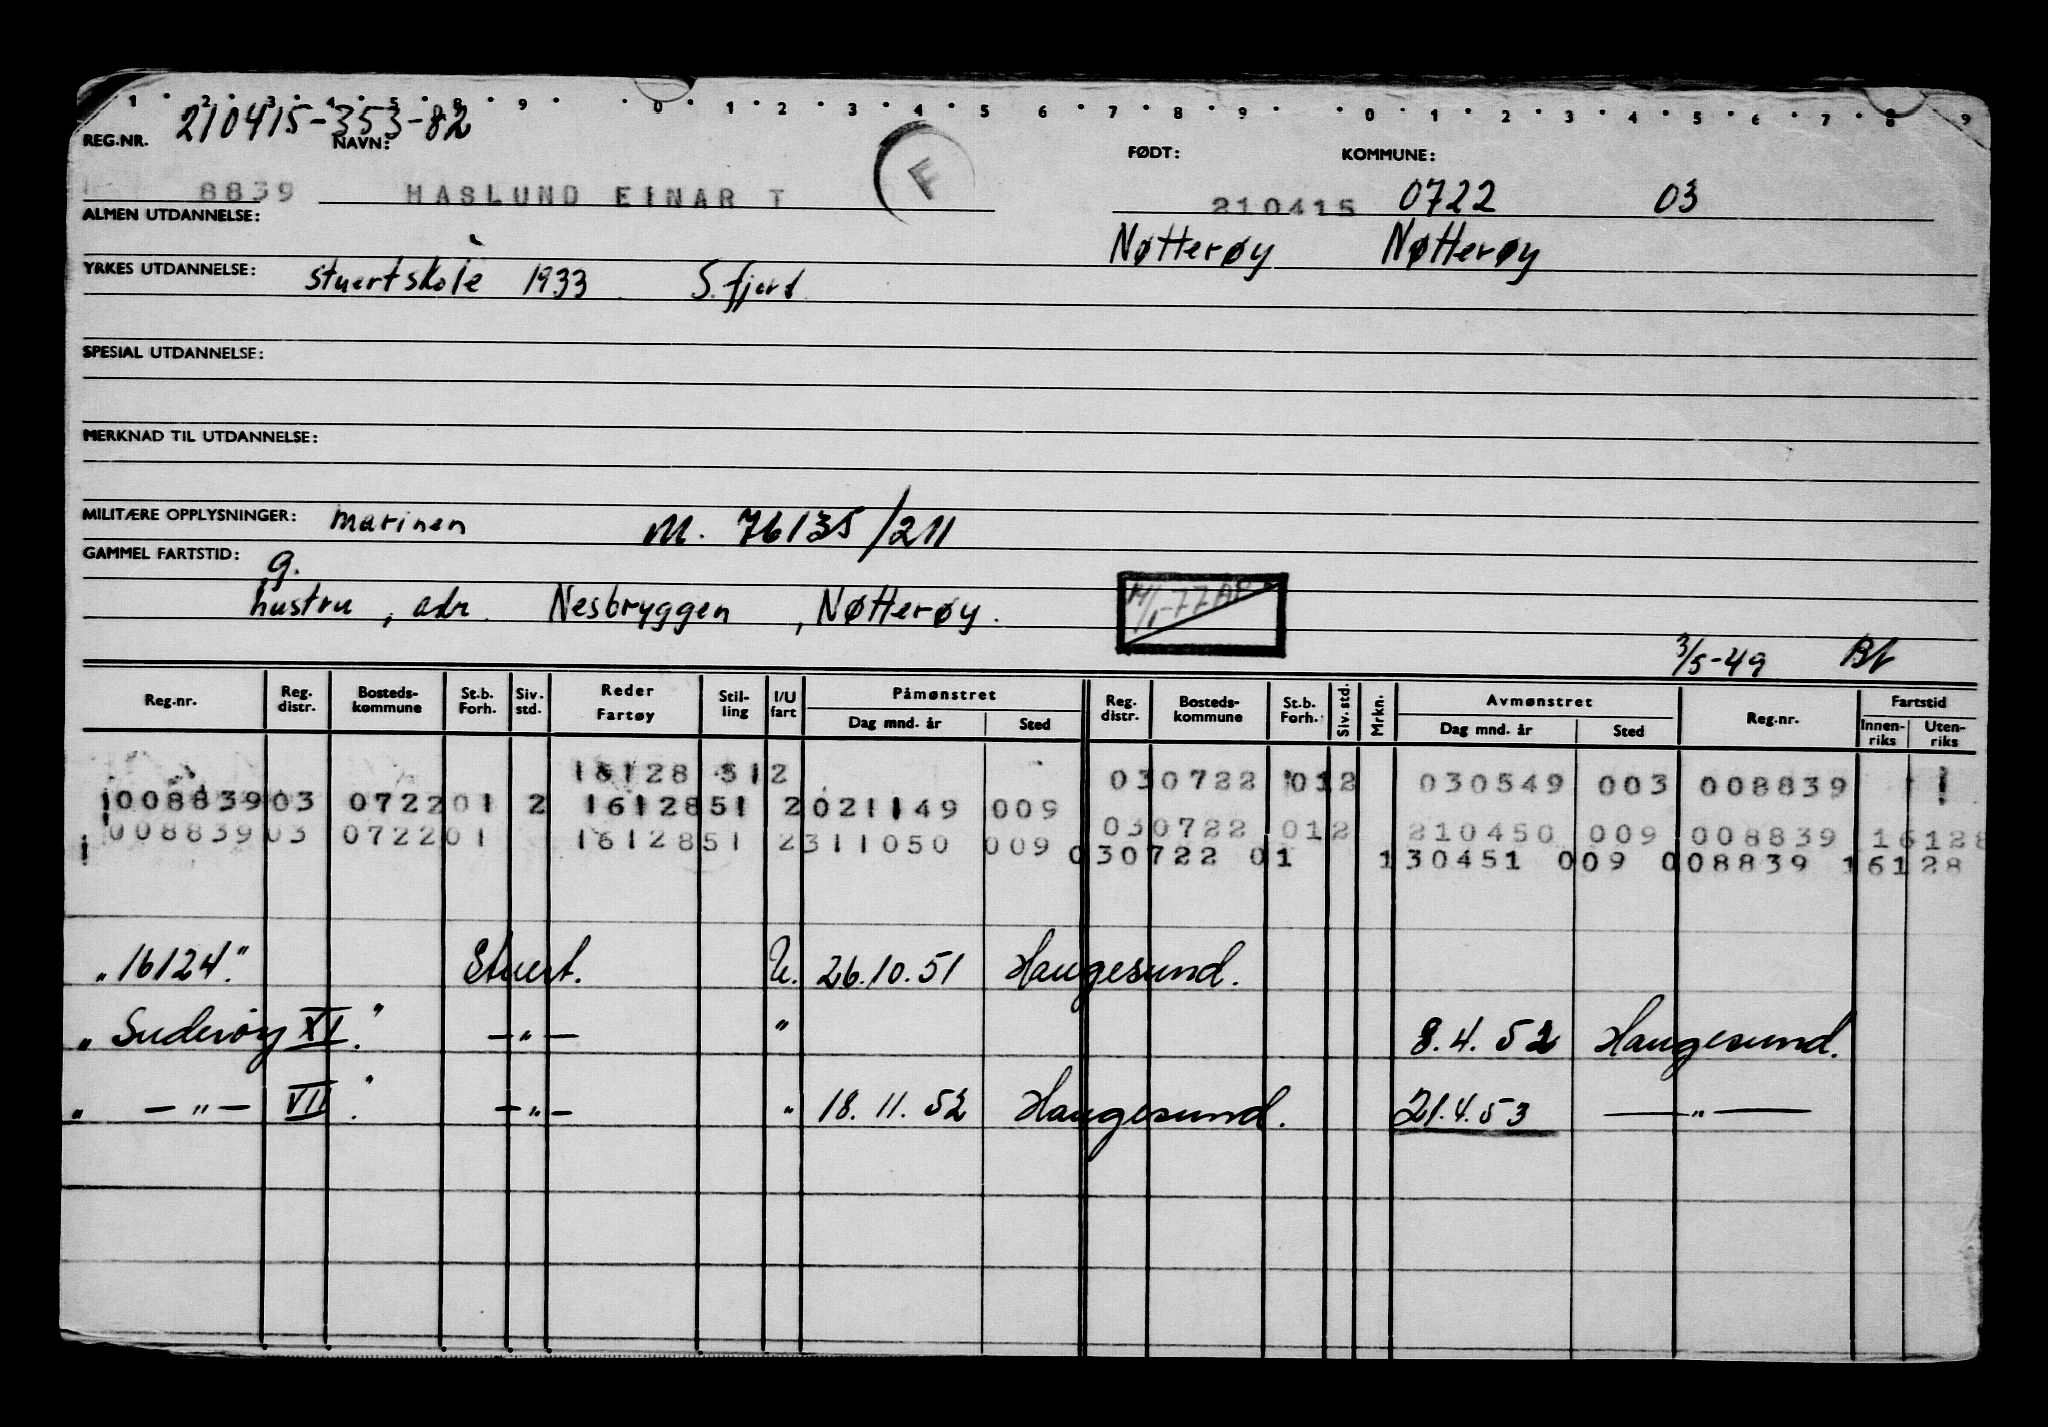 1 2 3 4 5 8 9 0 1 2 3 4 5 6 7 8 9 0 1 2 3 4 5 6 7 8 9
REG.NR. 210415-353-82 NAVN: FØDT: KOMMUNE:
8839 HASLUND EINAR T F 210415 0722 03
ALMEN UTDANNELSE: Nøtterøy Nøtterøy
YRKES UTDANNELSE: stuertskole 1933 S.fjord
SPESIAL UTDANNELSE:
MERKNAD TIL UTDANNELSE:
MILITÆRE OPPLYSNINGER: marinen M. 76135/211
GAMMEL FARTSTID: g.
hustru, adr. Nesbryggen, Nøtterøy.
3/5-49
Reg.nr. Reg. distr. Bosteds-kommune St.b. Forh. Siv. std. Reder Fartøy Stil-ling I/U fart Påmønstret Dag mnd. år Sted Reg. distr. Bosteds-kommune St.b. Forh. Siv. std. Mrkn. Avmønstret Dag mnd. år Sted Reg.nr. Fartstid Innen-riks Uten-riks
16128 512 030722 012 030549 003 008839
008839 03 0722 01 2 16128 51 2 021149 009 030722 012 210450 009 008839 16128
008839 03 0722 01 16128 51 2 311050 009 030722 01 130451 009 008839 16128
"16124." Stuert. U. 26.10.51 Haugesund.
"Suderøy XI." —"— " 8.4.52 Haugesund.
" —"— VII." —"— " 18.11.52 Haugesund. 21.4.53 —"—